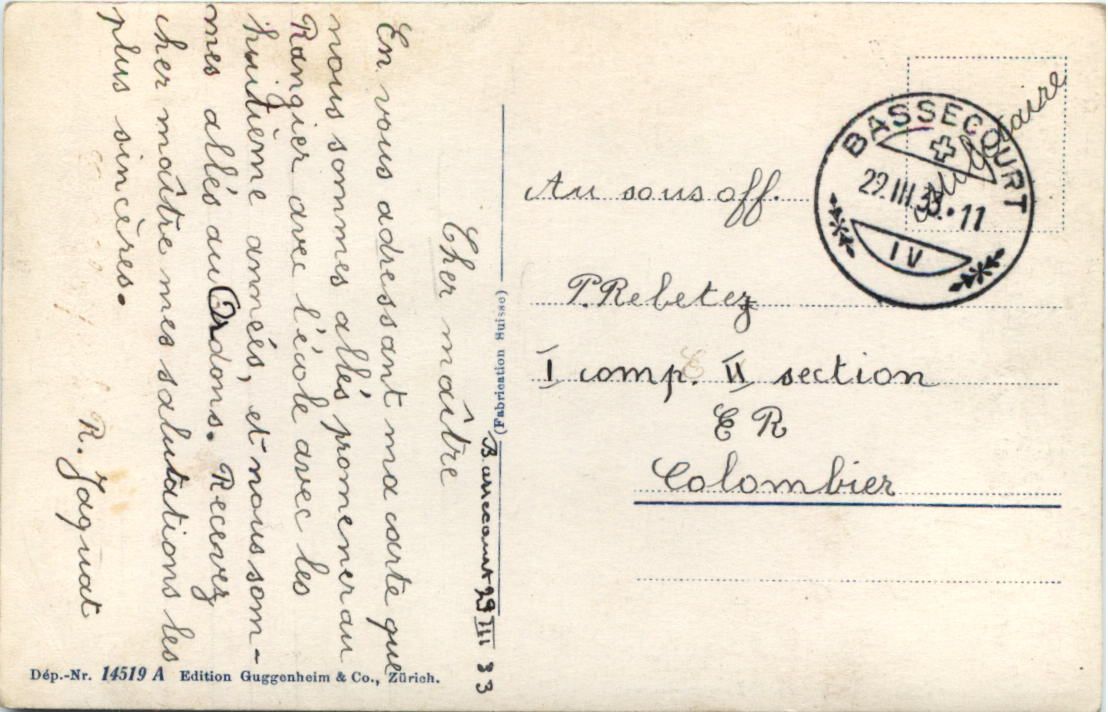 Bassecourt 29 III 33
Cher maître
En vous adressant ma carte que
nous sommes allés promener au
Rangier avec l'école avec les
huitième annés, et nous som-
mes allés au Ordons. Recevez
cher maître mes salutations les
plus sincères.
R. Jaquat
(Fabrication Suisse)
Dép.-Nr. 14519 A Edition Guggenheim & Co., Zürich.
militaire
BASSECOURT
29.III.33.11
IV
Au sous off.
P. Rebetez
I comp. II section
E R
Colombier